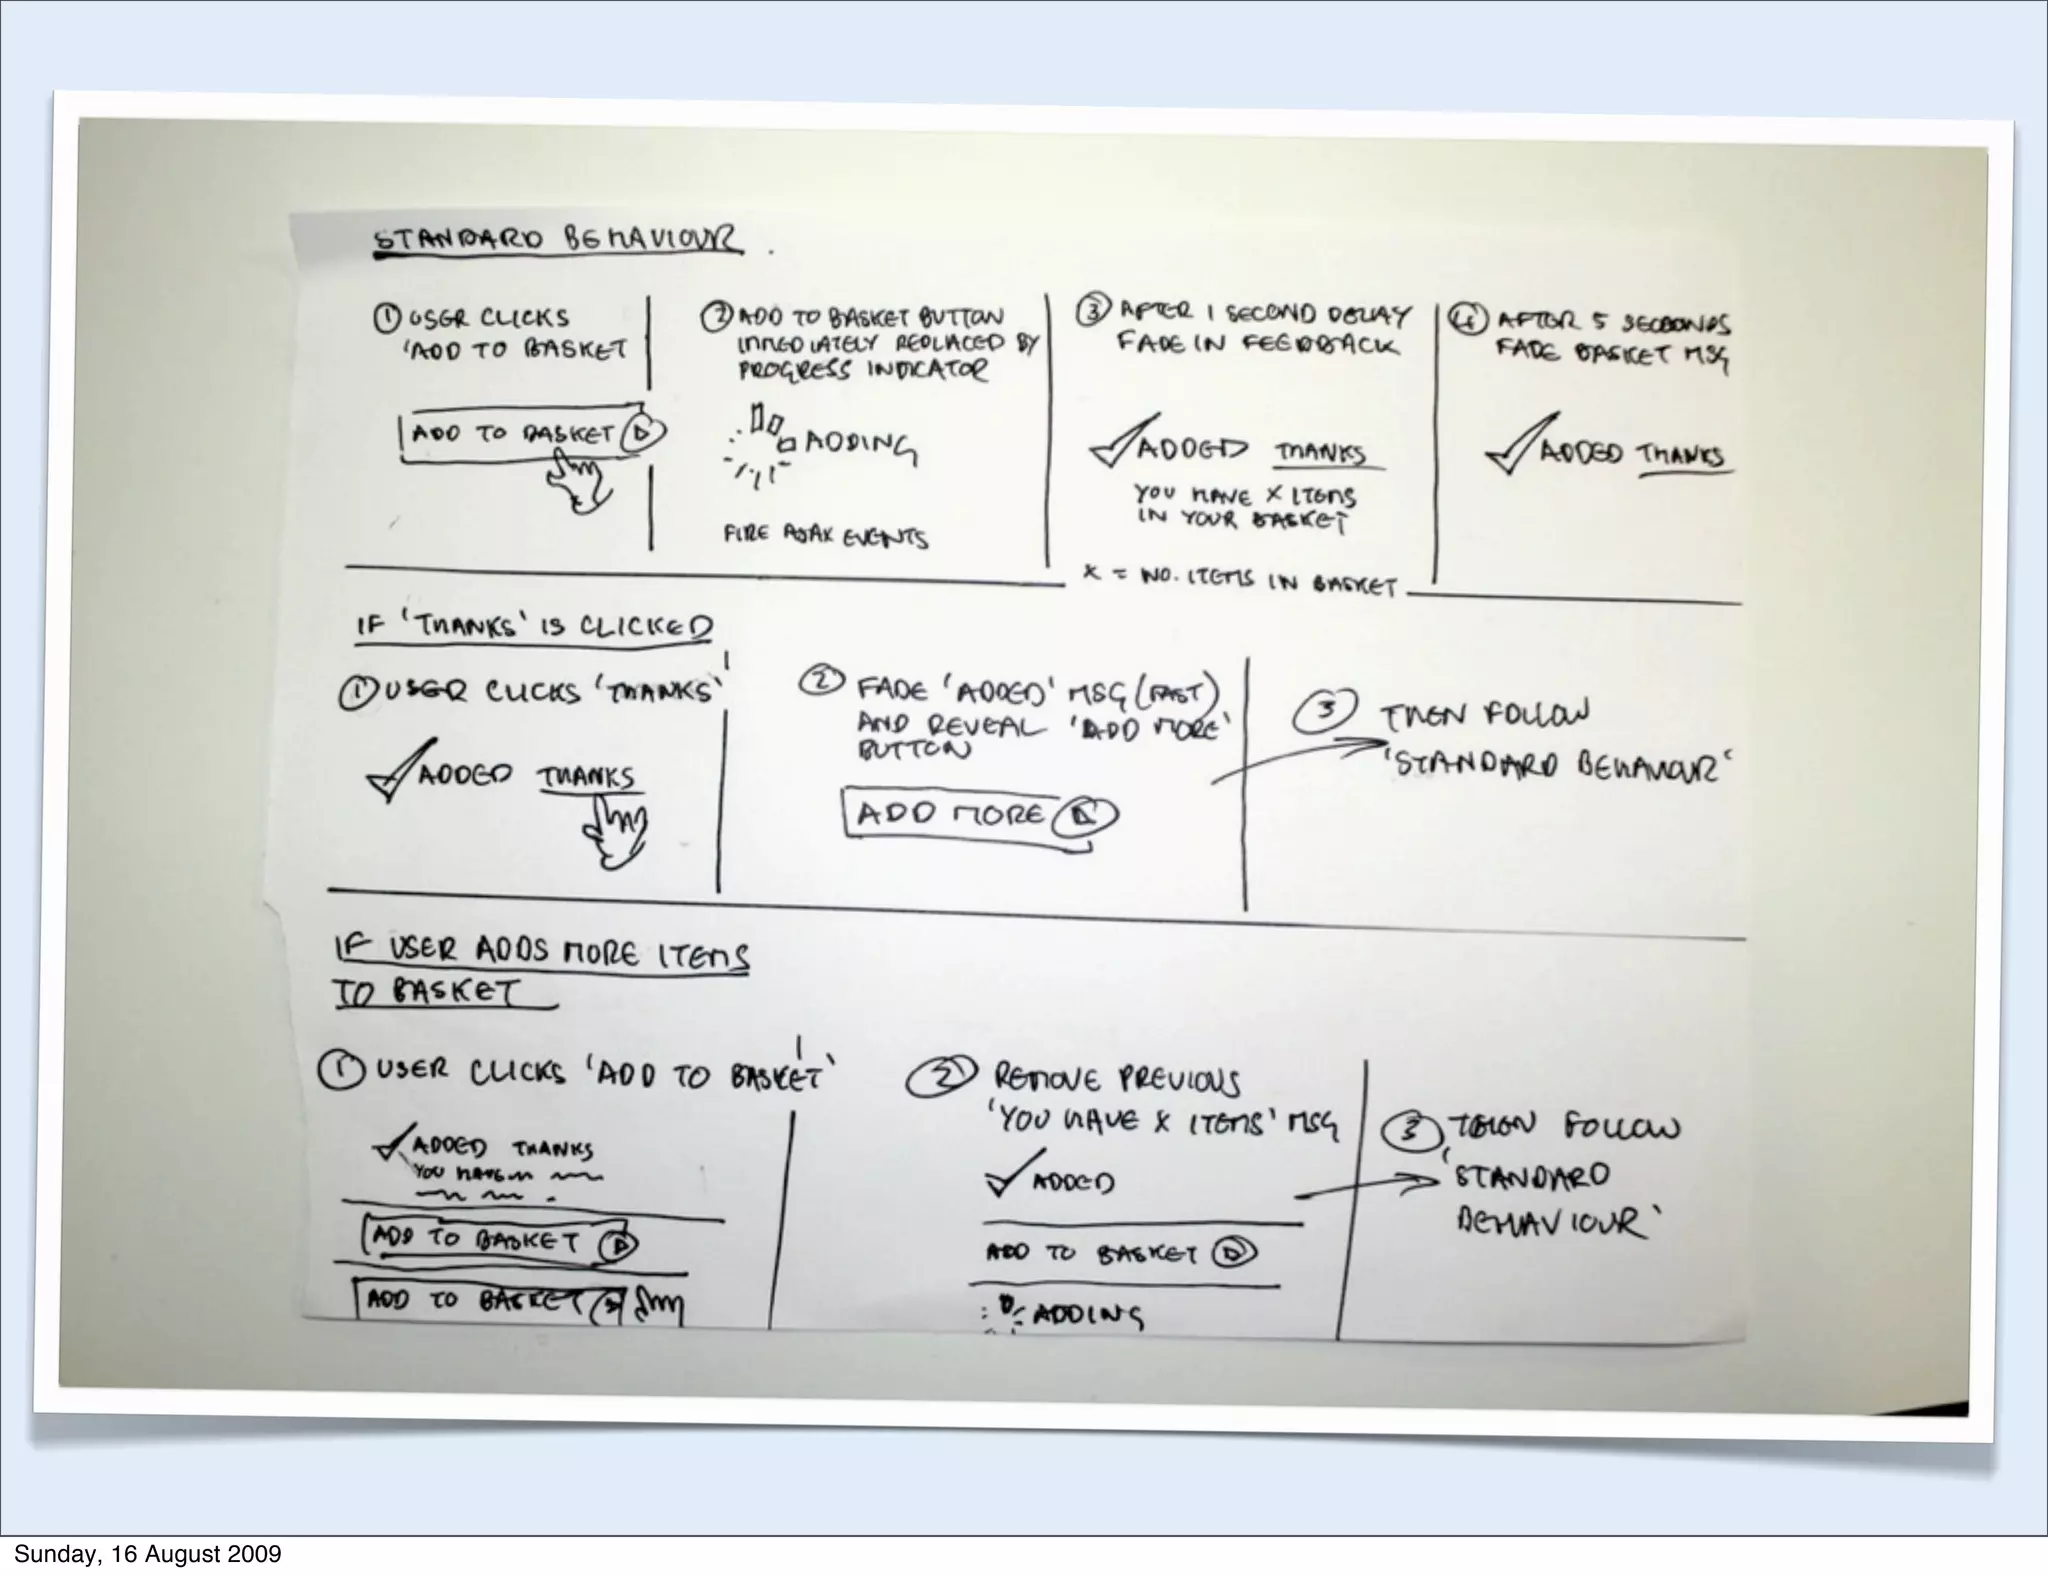 STANDARD BEHAVIOUR.
1 USER CLICKS
'ADD TO BASKET
ADD TO BASKET
2 ADD TO BASKET BUTTON
IMMEDIATELY REPLACED BY
PROGRESS INDICATOR
ADDING
FIRE AJAX EVENTS
3 AFTER 1 SECOND DELAY
FADE IN FEEDBACK
ADDED THANKS
YOU HAVE X ITEMS
IN YOUR BASKET
X = NO. ITEMS IN BASKET
4 AFTER 5 SECOONDS
FADE BASKET MSG
ADDED THANKS
IF 'THANKS' IS CLICKED
1 USER CLICKS 'THANKS'
ADDED THANKS
2 FADE 'ADDED' MSG (FAST)
AND REVEAL 'ADD MORE'
BUTTON
ADD MORE
3 THEN FOLLOW
'STANDARD BEHAVIOUR'
IF USER ADDS MORE ITEMS
TO BASKET
1 USER CLICKS 'ADD TO BASKET'
ADDED THANKS
YOU HAVE
ADD TO BASKET
ADD TO BASKET
2 REMOVE PREVIOUS
'YOU HAVE X ITEMS' MSG
ADDED
ADD TO BASKET
ADDING
3 THEN FOLLOW
'STANDARD
BEHAVIOUR'
Sunday, 16 August 2009